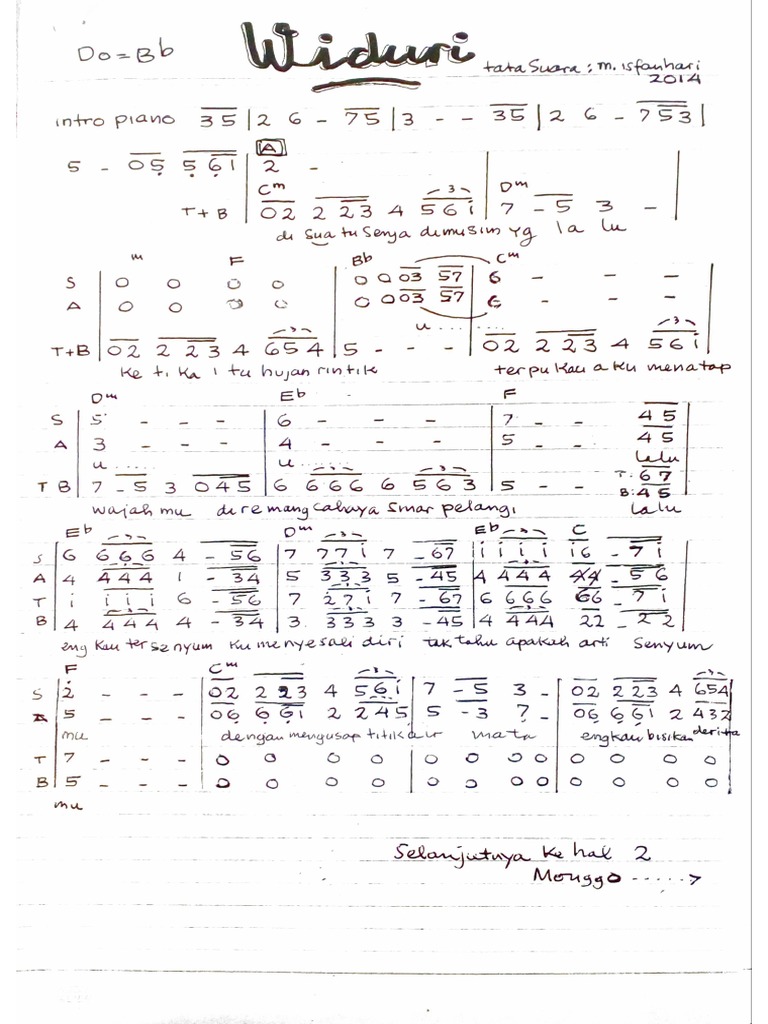 Do = Bb
Widuri
tata suara : m. isfanhari
2014
intro piano 35 | 2 6 - 75 | 3 - - 35 | 2 6 - 753 |
5 - 05 561 | A 2 -
Cm Dm
T+B 02 2 23 4 561 | 7 - 5 3 - |
di suatu senja dimusim yg la lu
m F Bb Cm
S 0 0 0 0 | 0 0 03 57 | 6 - - -
A 0 0 0 0 | 0 0 03 57 | 6 - - -
u ........
T+B 02 2 23 4 654 | 5 - - - | 02 2 23 4 561 |
ke ti ka i tu hujan rintik terpukau aku menatap
Dm Eb F
S 5 - - - | 6 - - - | 7 - - 45
A 3 - - - | 4 - - - | 5 - - 45
u ..... u ..... lalu
T B 7 - 5 3 045 | 6 6 6 6 6 563 | 5 - - T: 67 B: 45
wajah mu di remang cahaya sinar pelangi lalu
Eb Dm Eb C
S 6 666 4 - 56 | 7 771 7 - 67 | 1 111 16 - 71
A 4 444 1 - 34 | 5 333 5 - 45 | 4 444 44 - 56
T 1 111 6 - 56 | 7 271 7 - 67 | 6 666 66 - 71
B 4 444 4 - 34 | 3 333 3 - 45 | 4 444 22 - 22
eng kau tersenyum ku menyesali diri tak tahu apakah arti senyum
F Cm
S 2 - - - | 02 2 23 4 561 | 7 - 5 3 - | 02 2 23 4 654
A 5 - - - | 06 661 2 245 | 5 - 3 7 - | 06 661 2 432
mu dengan mengusap titik air mata engkau bisikan derita
T 7 - - - | 0 0 0 0 | 0 0 0 0 | 0 0 0 0
B 5 - - - | 0 0 0 0 | 0 0 0 0 | 0 0 0 0
mu
Selanjutnya ke hal 2
Monggo ----->